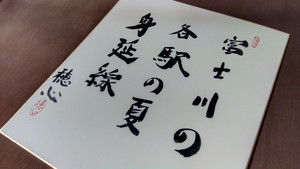 富士川の
各駅の夏
身延線